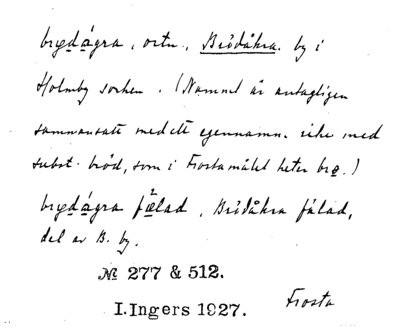 bryd̲á̲gra, ortn., Brödåkra. by i
Holmby socken. (Namnet är antagligen
sammansatt med ett egennamn. icke med
subst. bröd, som i Frostamålet heter brø̲.)
bryd̲á̲gra fǽlad, Brödåkra fälad,
del av B. by.
№ 277 & 512.
I.Ingers 1927. Frosta